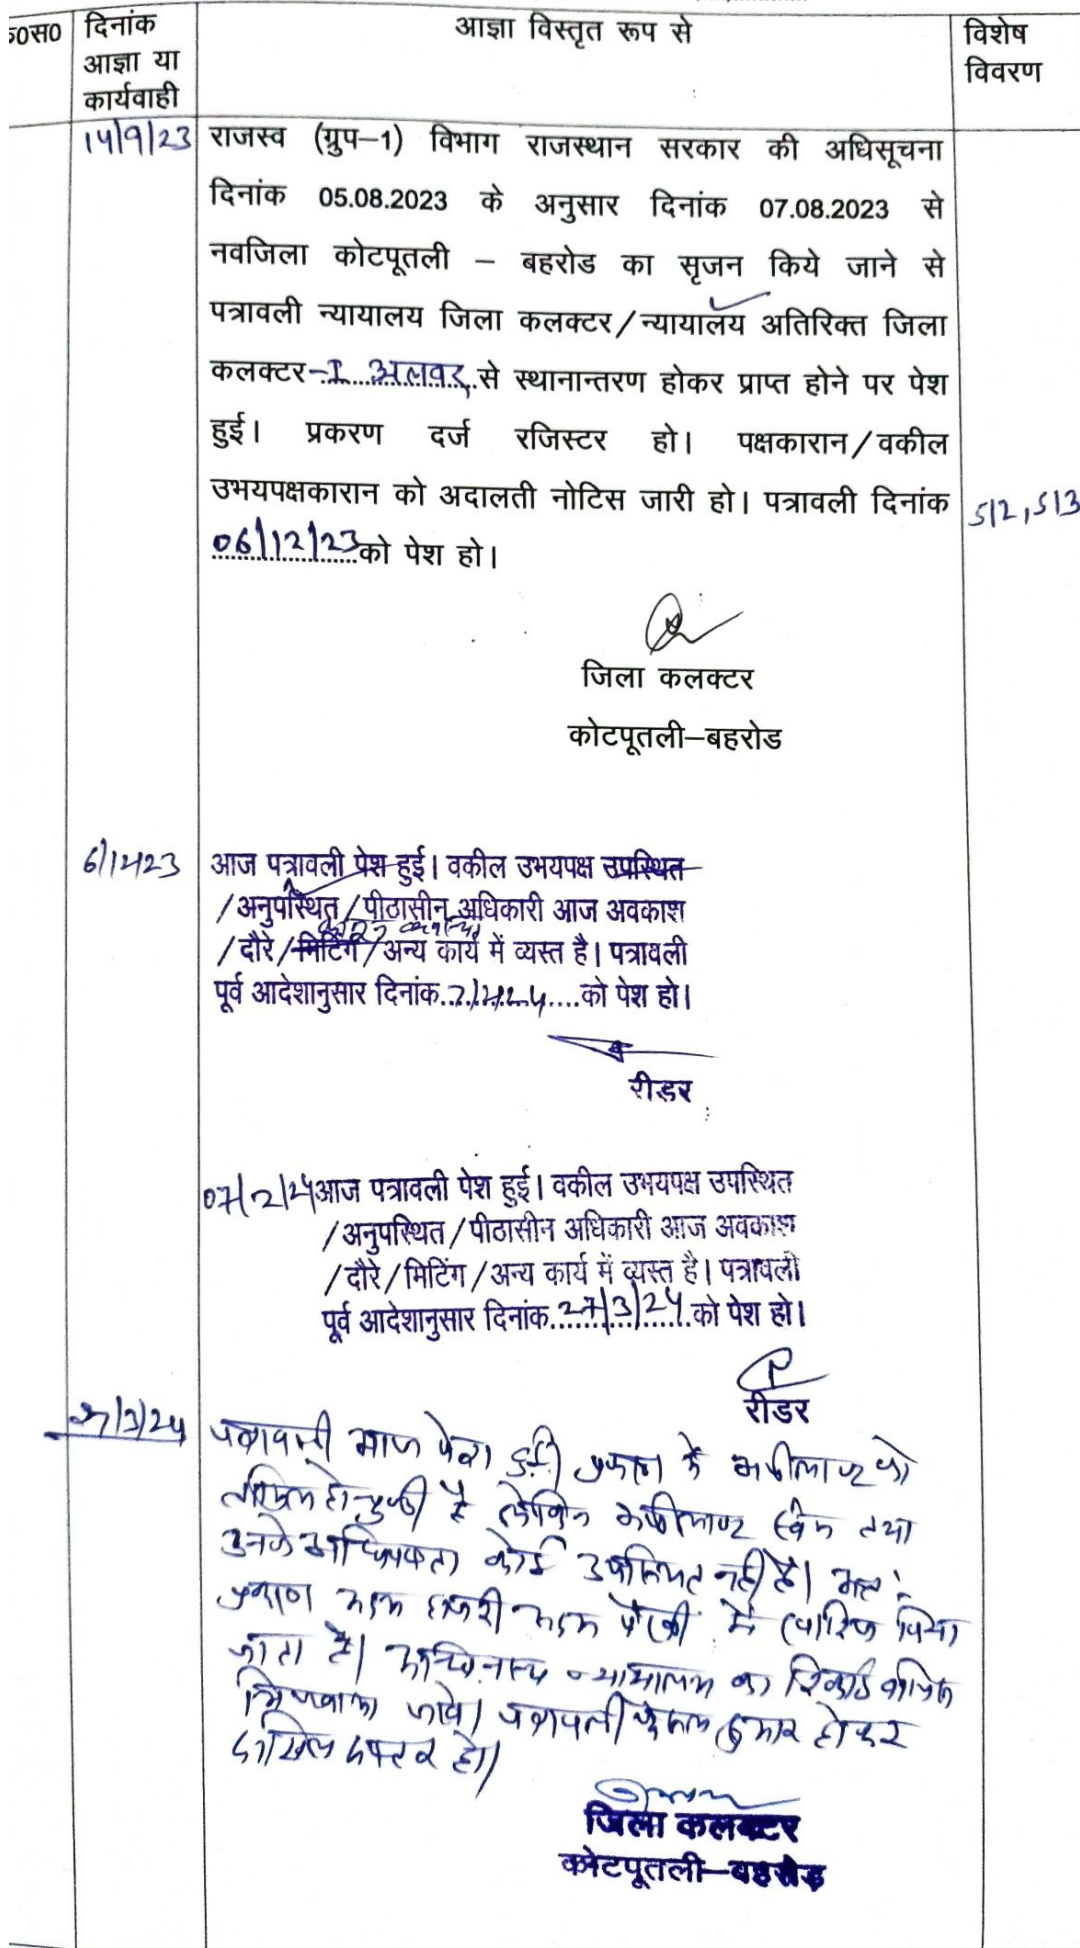 ०स० दिनांक आज्ञा या कार्यवाही आज्ञा विस्तृत रूप से विशेष विवरण
14/9/23 राजस्व (ग्रुप–1) विभाग राजस्थान सरकार की अधिसूचना
दिनांक 05.08.2023 के अनुसार दिनांक 07.08.2023 से
नवजिला कोटपूतली – बहरोड का सृजन किये जाने से
पत्रावली न्यायालय जिला कलक्टर/न्यायालय अतिरिक्त जिला
कलक्टर–I अलवर से स्थानान्तरण होकर प्राप्त होने पर पेश
हुई। प्रकरण दर्ज रजिस्टर हो। पक्षकारान/वकील
उभयपक्षकारान को अदालती नोटिस जारी हो। पत्रावली दिनांक 512, 513
06/12/23 को पेश हो।
जिला कलक्टर
कोटपूतली–बहरोड
6/12/23 आज पत्रावली पेश हुई। वकील उभयपक्ष उपस्थित
/अनुपस्थित/पीठासीन अधिकारी आज अवकाश
/दौरे/मिटिंग/अन्य कार्य में व्यस्त है। पत्रावली
पूर्व आदेशानुसार दिनांक 7/2/24 को पेश हो।
रीडर
07/2/24 आज पत्रावली पेश हुई। वकील उभयपक्ष उपस्थित
/अनुपस्थित/पीठासीन अधिकारी आज अवकाश
/दौरे/मिटिंग/अन्य कार्य में व्यस्त है। पत्रावली
पूर्व आदेशानुसार दिनांक 27/3/24 को पेश हो।
रीडर
27/3/24 पत्रावली आज पेश हुई। प्रकरण में अपीलाण्ट को
तामिल हो चुकी है लेकिन अपीलाण्ट स्वंय तथा
उनके अधिवक्ता कोई उपस्थित नहीं है। अतः
प्रकरण अदम हाजरी अदम पैरवी में खारिज किया
जाता है। अधिनस्थ न्यायालय का रिकार्ड वापिस
भिजवाया जावे। पत्रावली फैसल शुमार होकर
दाखिल दफ्तर हो।
जिला कलक्टर
कोटपूतली–बहरोड